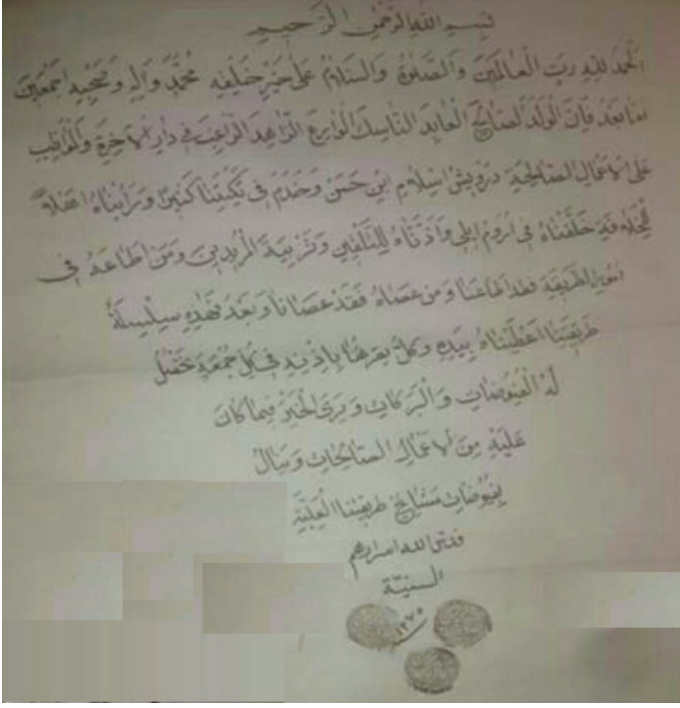 بسم الله الرحمن الرحيم
الحمد لله رب العالمين والصلوة والسلام على خير خلقه محمد وآله وصحبه اجمعين
اما بعد فان الولد الصالح العابد الناسك الوارع الزاهد الراغب في دار الآخرة والمواظب
على الاعمال الصالحة درويش اسلام ابن حسن وخدم في تكيتنا كثيرا ورأيناه
قد خلفناه في واذناه للتلقين وتربية المريدين ومن اطاعه في
الطريقة فقد اطاعنا ومن عصاه فقد عصانا وبعد فهذه سلسلة
طريقتنا اعطيناه بيده وكل يقرها باذنه في كل جمعة تحصل
له الفيوضات والبركات ويرى الخير فيما كان
عليه من الاعمال الصالحات وينال
بفيوضات مشايخ طريقتنا العلية
قدس الله اسرارهم
السنية
١٢٧٥